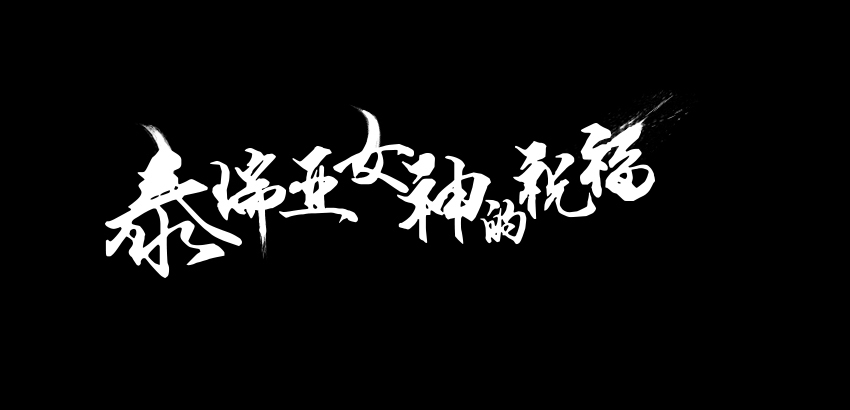 泰瑞亚女神的祝福